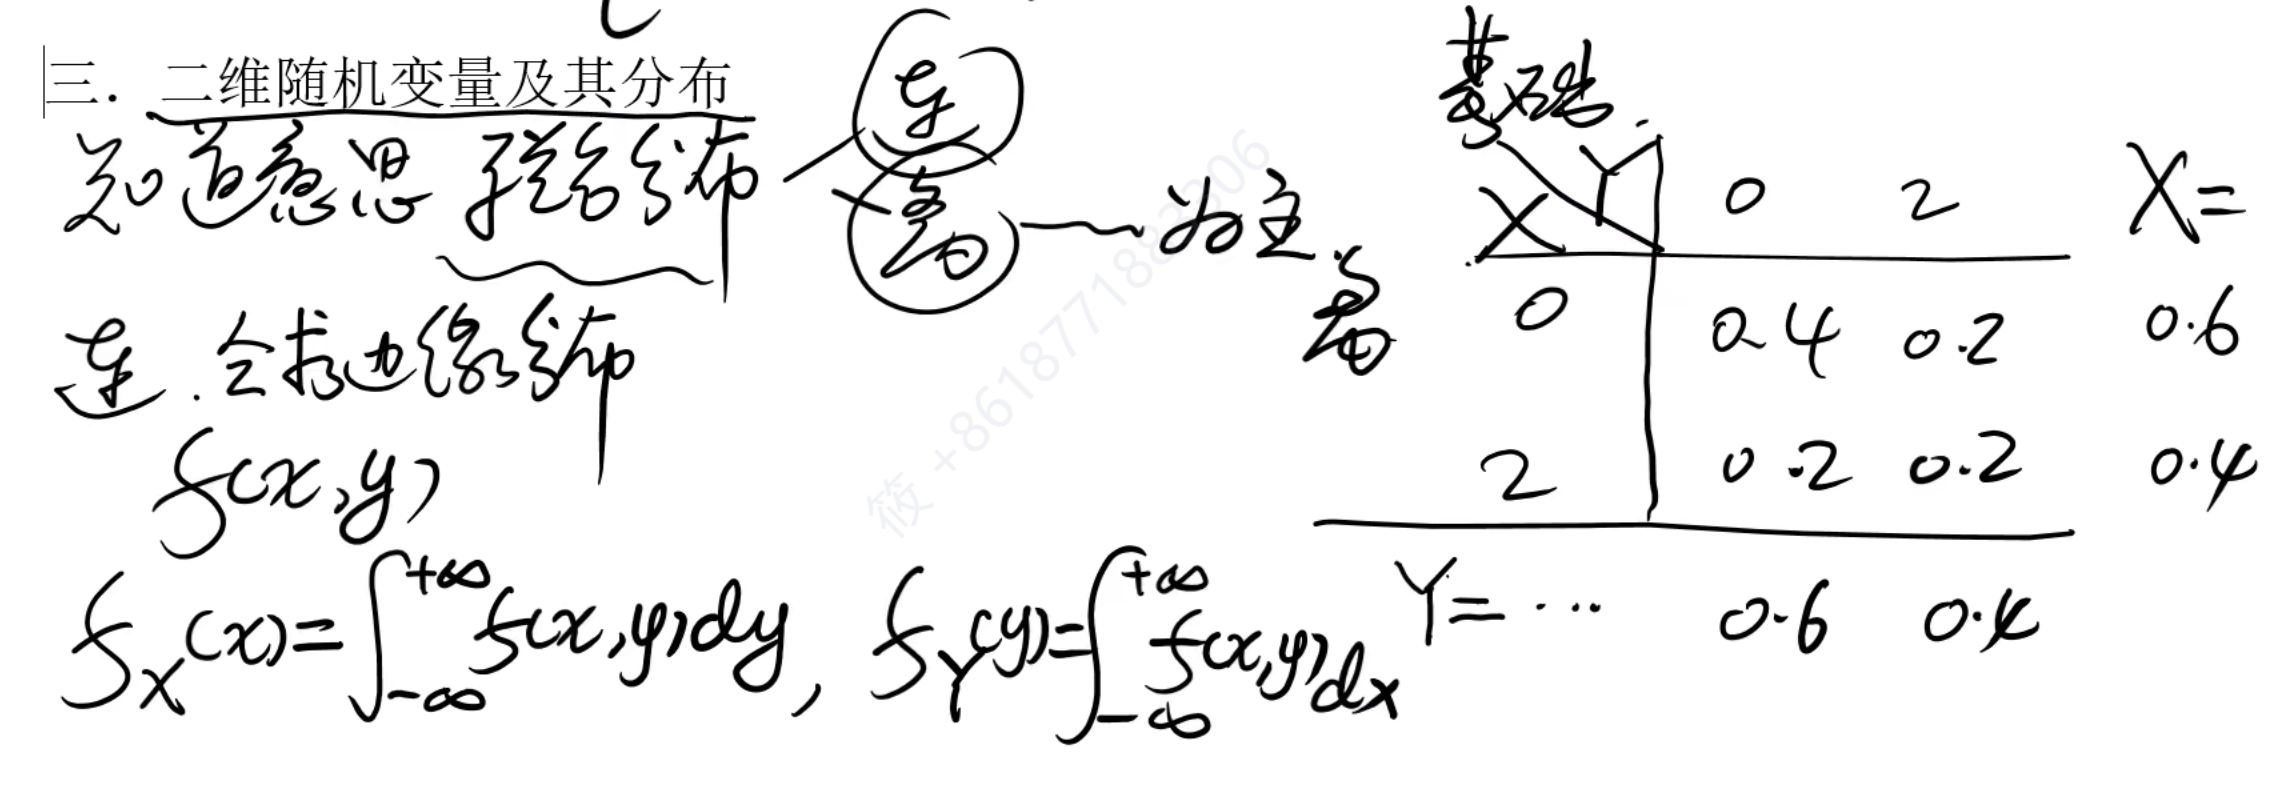 三．二维随机变量及其分布
知道意思 联合分布 连
离 为主.
连.会求边缘分布
f(x,y)
f_X(x)=∫_{-∞}^{+∞}f(x,y)dy, f_Y(y)=∫_{-∞}^{+∞}f(x,y)dx
基础.
离
X Y 0 2 X=
0 0.4 0.2 0.6
2 0.2 0.2 0.4
Y= ... 0.6 0.4
筱 +8618771883306